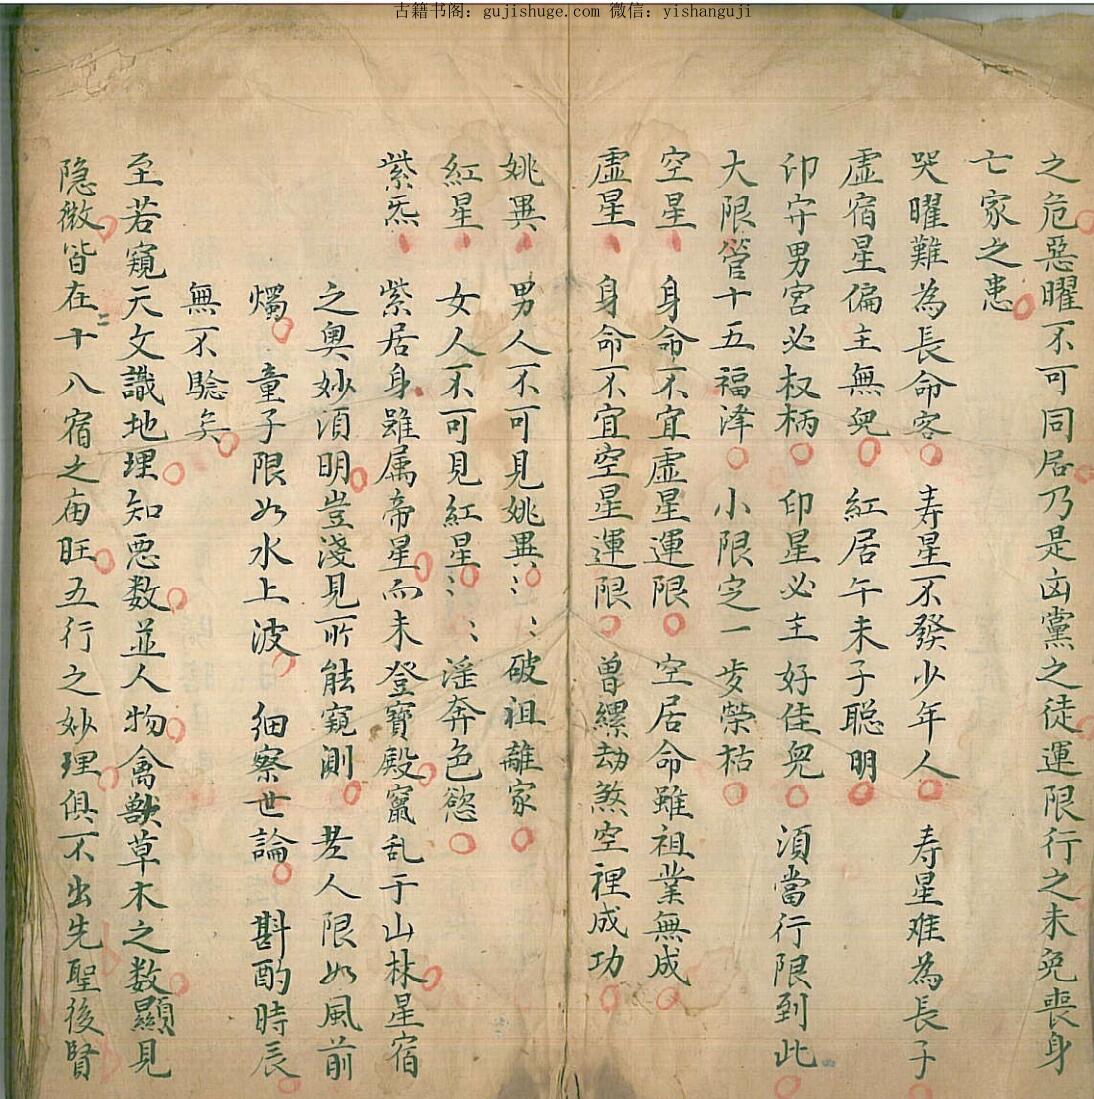 古籍书阁: gujishuge.com 微信: yishanguji
之危惡曜不可同居乃是凶黨之徒運限行之未免喪身
亡家之患
哭曜難為長命客 寿星不發少年人 寿星难為長子
虛宿星偏主無兒 紅居午未子聪明
印守男宮必权柄 印星必主好佳兒 須當行限到此
大限管十五福泽 小限定一步榮枯
空星 身命不宜虛星運限 空居命雖祖業無成
虛星 身命不宜空星運限 曾纙劫煞空裡成功
姚異 男人不可見姚異〻〻破祖離家
紅星 女人不可見紅星〻〻淫奔色慾
紫炁 紫居身雖属帝星而未登寶殿竄乱于山林星宿
之奥妙須明豈淺見所能窺測 老人限如風前
燭 童子限如水上波 细察世論 斟酌時辰
無不驗矣
至若窺天文識地理知惡数並人物禽獸草木之数顯見
隐微皆在十八宿之庙旺五行之妙理俱不出先聖後賢